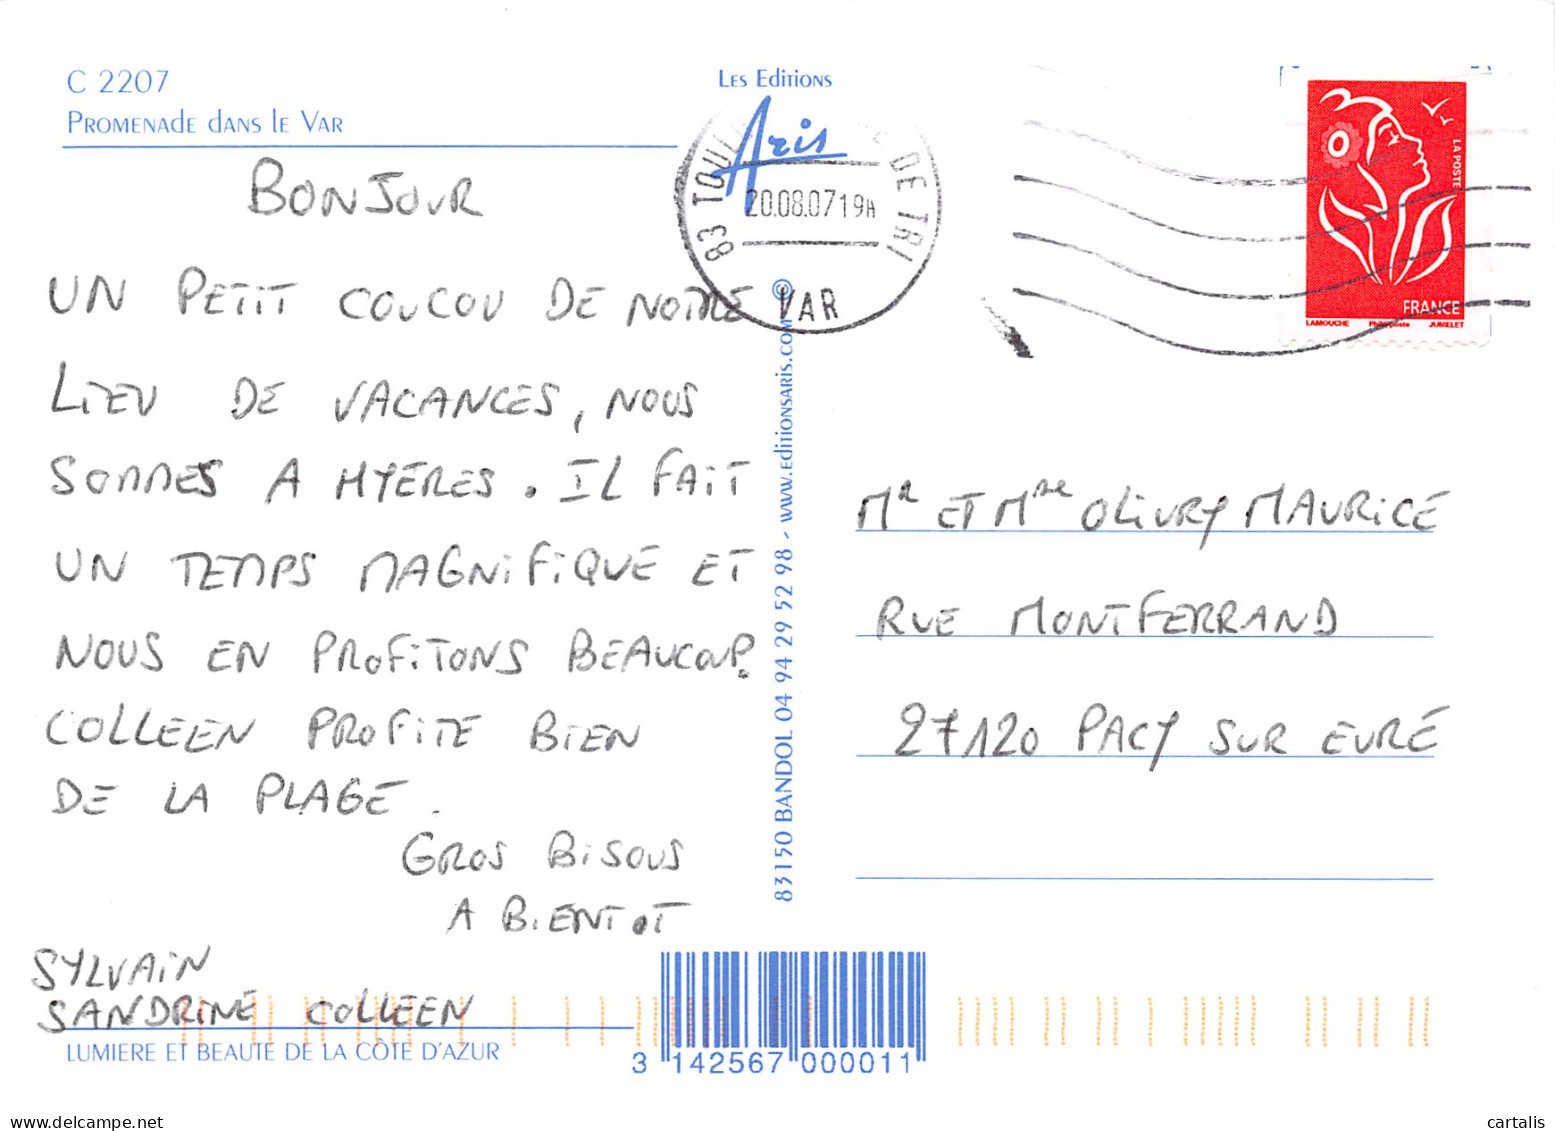 C 2207
PROMENADE DANS LE VAR
LES EDITIONS
Aris
83 TOUL DE TRI
20.08.07 19H
VAR
LA POSTE
FRANCE
LAMOUCHE Phil@poste JUMELET
BONJOUR
UN PETIT COUCOU DE NOTRE
LIEU DE VACANCES, NOUS
SOMMES A HYERES. IL FAIT
UN TEMPS MAGNIFIQUE ET
NOUS EN PROFITONS BEAUCOUP.
COLLEEN PROFITE BIEN
DE LA PLAGE.
GROS BISOUS
A BIENTOT
SYLVAIN
SANDRINE COLLEEN
LUMIERE ET BEAUTE DE LA CÔTE D'AZUR
83150 BANDOL 04 94 29 52 98 - www.EDITIONSARIS.COM ©
MR ET MME OLIVRY MAURICE
RUE MONTFERRAND
27120 PACY SUR EURE
3 142567 000011
delcampe.net
cartalis